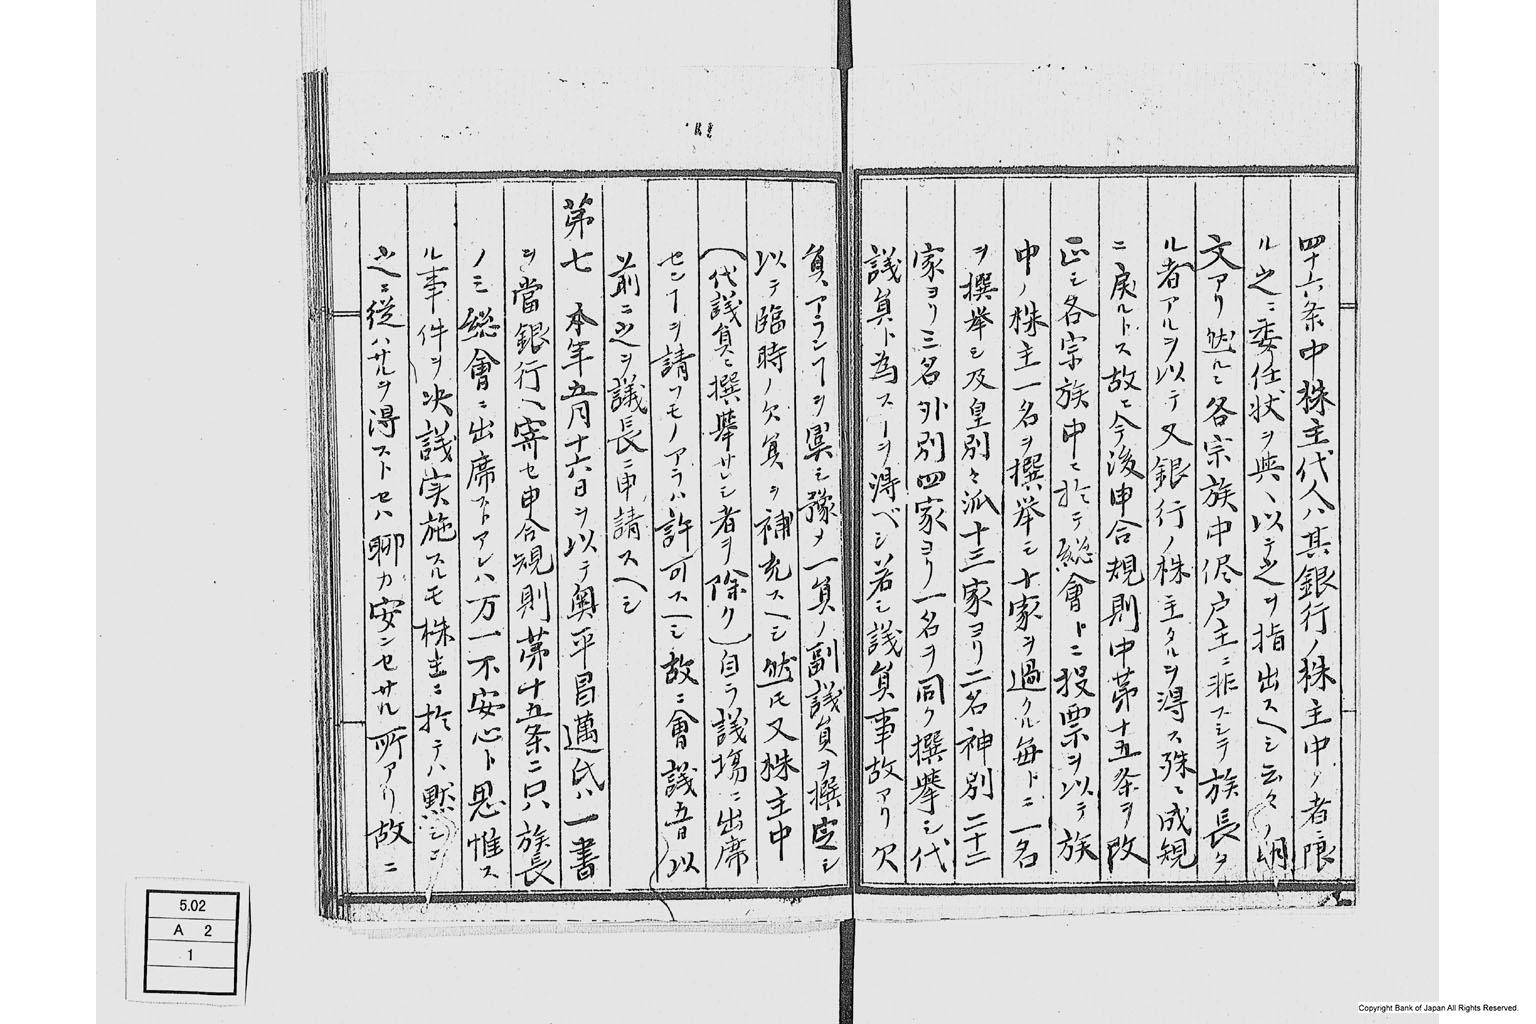 四十六条中株主代人ハ其銀行ノ株主中ノ者ニ限
ル之ニ委任状ヲ與ヘ以テ之ヲ指出スヘシ云々ノ明
文アリ然ルニ各宗族中侭戸主ニ非スシテ族長タ
ル者アルヲ以テ又銀行ノ株主タルヲ得ス殊ニ成規
ニ戻ルトス故ニ今後申合規則中第十五条ヲ改
正シ各宗族中ニ於テ総會ドニ投票ヲ以テ族
中ノ株主一名ヲ撰挙シ十家ヲ過クル毎ドニ一名
ヲ撰挙シ及皇別ハ派十三家ヨリ二名神別二十二
家ヨリ三名外別四家ヨリ一名ヲ同ク撰挙シ代
議員ト為スヿヲ得ベシ若シ議員事故アリ欠
員アランヿヲ異シ豫メ一員ノ副議員ヲ撰定シ
以テ臨時ノ欠員ヲ補充スヘシ然ㇾ𪜈又株主中
(代議員ニ撰挙サレシ者ヲ除ク)自ラ議場ニ出席
センヿヲ請フモノアラハ許可スヘシ故ニ會議五日以
前ニ之ヲ議長ニ申請スヘシ
第七 本年五月十六日ヲ以テ奥平昌邁氏ハ一書
ヲ當銀行ヘ寄セ申合規則第十五条ニ只族長
ノミ総會ニ出席ストアレハ万一不安心ト思惟ス
ル事件ヲ決議実施スルモ株主ニ於テハ黙シテ
之ニ従ハサルヲ得ストセハ聊カ安ンセサル所アリ故ニ
5.02
A 2
1
Copyright Bank of Japan All Rights Reserved.